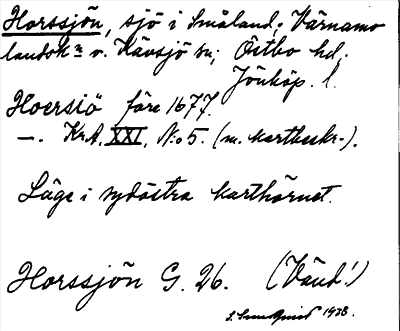 Horssjön, sjö i Småland; Värnamo
landsk:n o. Kävsjö sn; Östbo hd.
Jönköp. l.
Hoersiö före 1677.
—. Kr.A. XXI, No 5. (m. kartbeskr.).
Läge i sydöstra karthörnet.
Horssjön G. 26. (Vänd!)
S. Sundquist 1938.